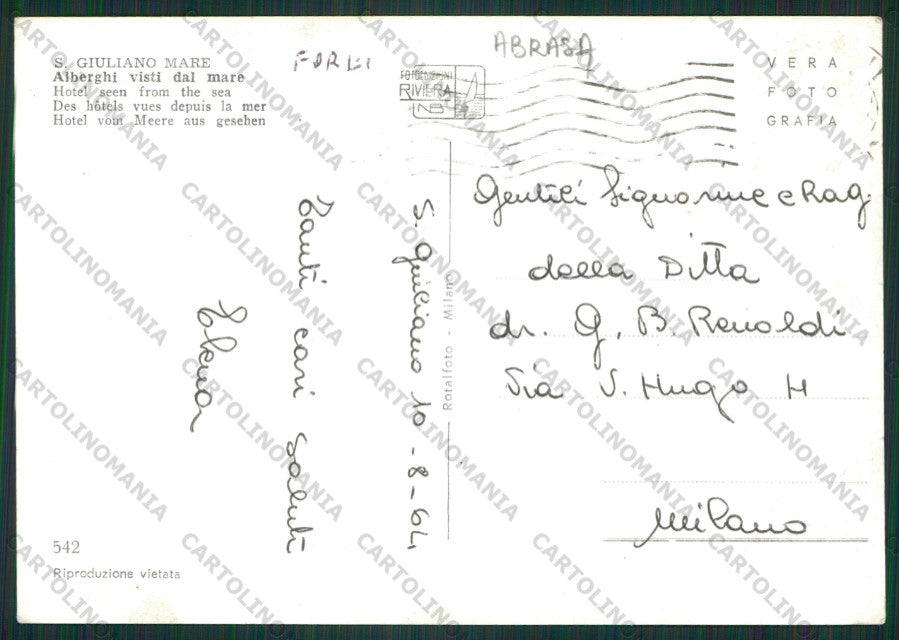 S. GIULIANO MARE
Alberghi visti dal mare
Hotel seen from the sea
Des hôtels vues depuis la mer
Hotel vom Meere aus gesehen
FORLI
ABRASA
FOTOEDIZIONI
RIVIERA
VERA
FOTO
GRAFIA
S. Giuliano 10-8-64
Tanti cari saluti
Rotalfoto - Milano
Gentili Signorine e Rag.
della Ditta
dr. G. B. Renoldi
Via V. Hugo 4
Milano
542
Riproduzione vietata
CARTOLINOMANIA